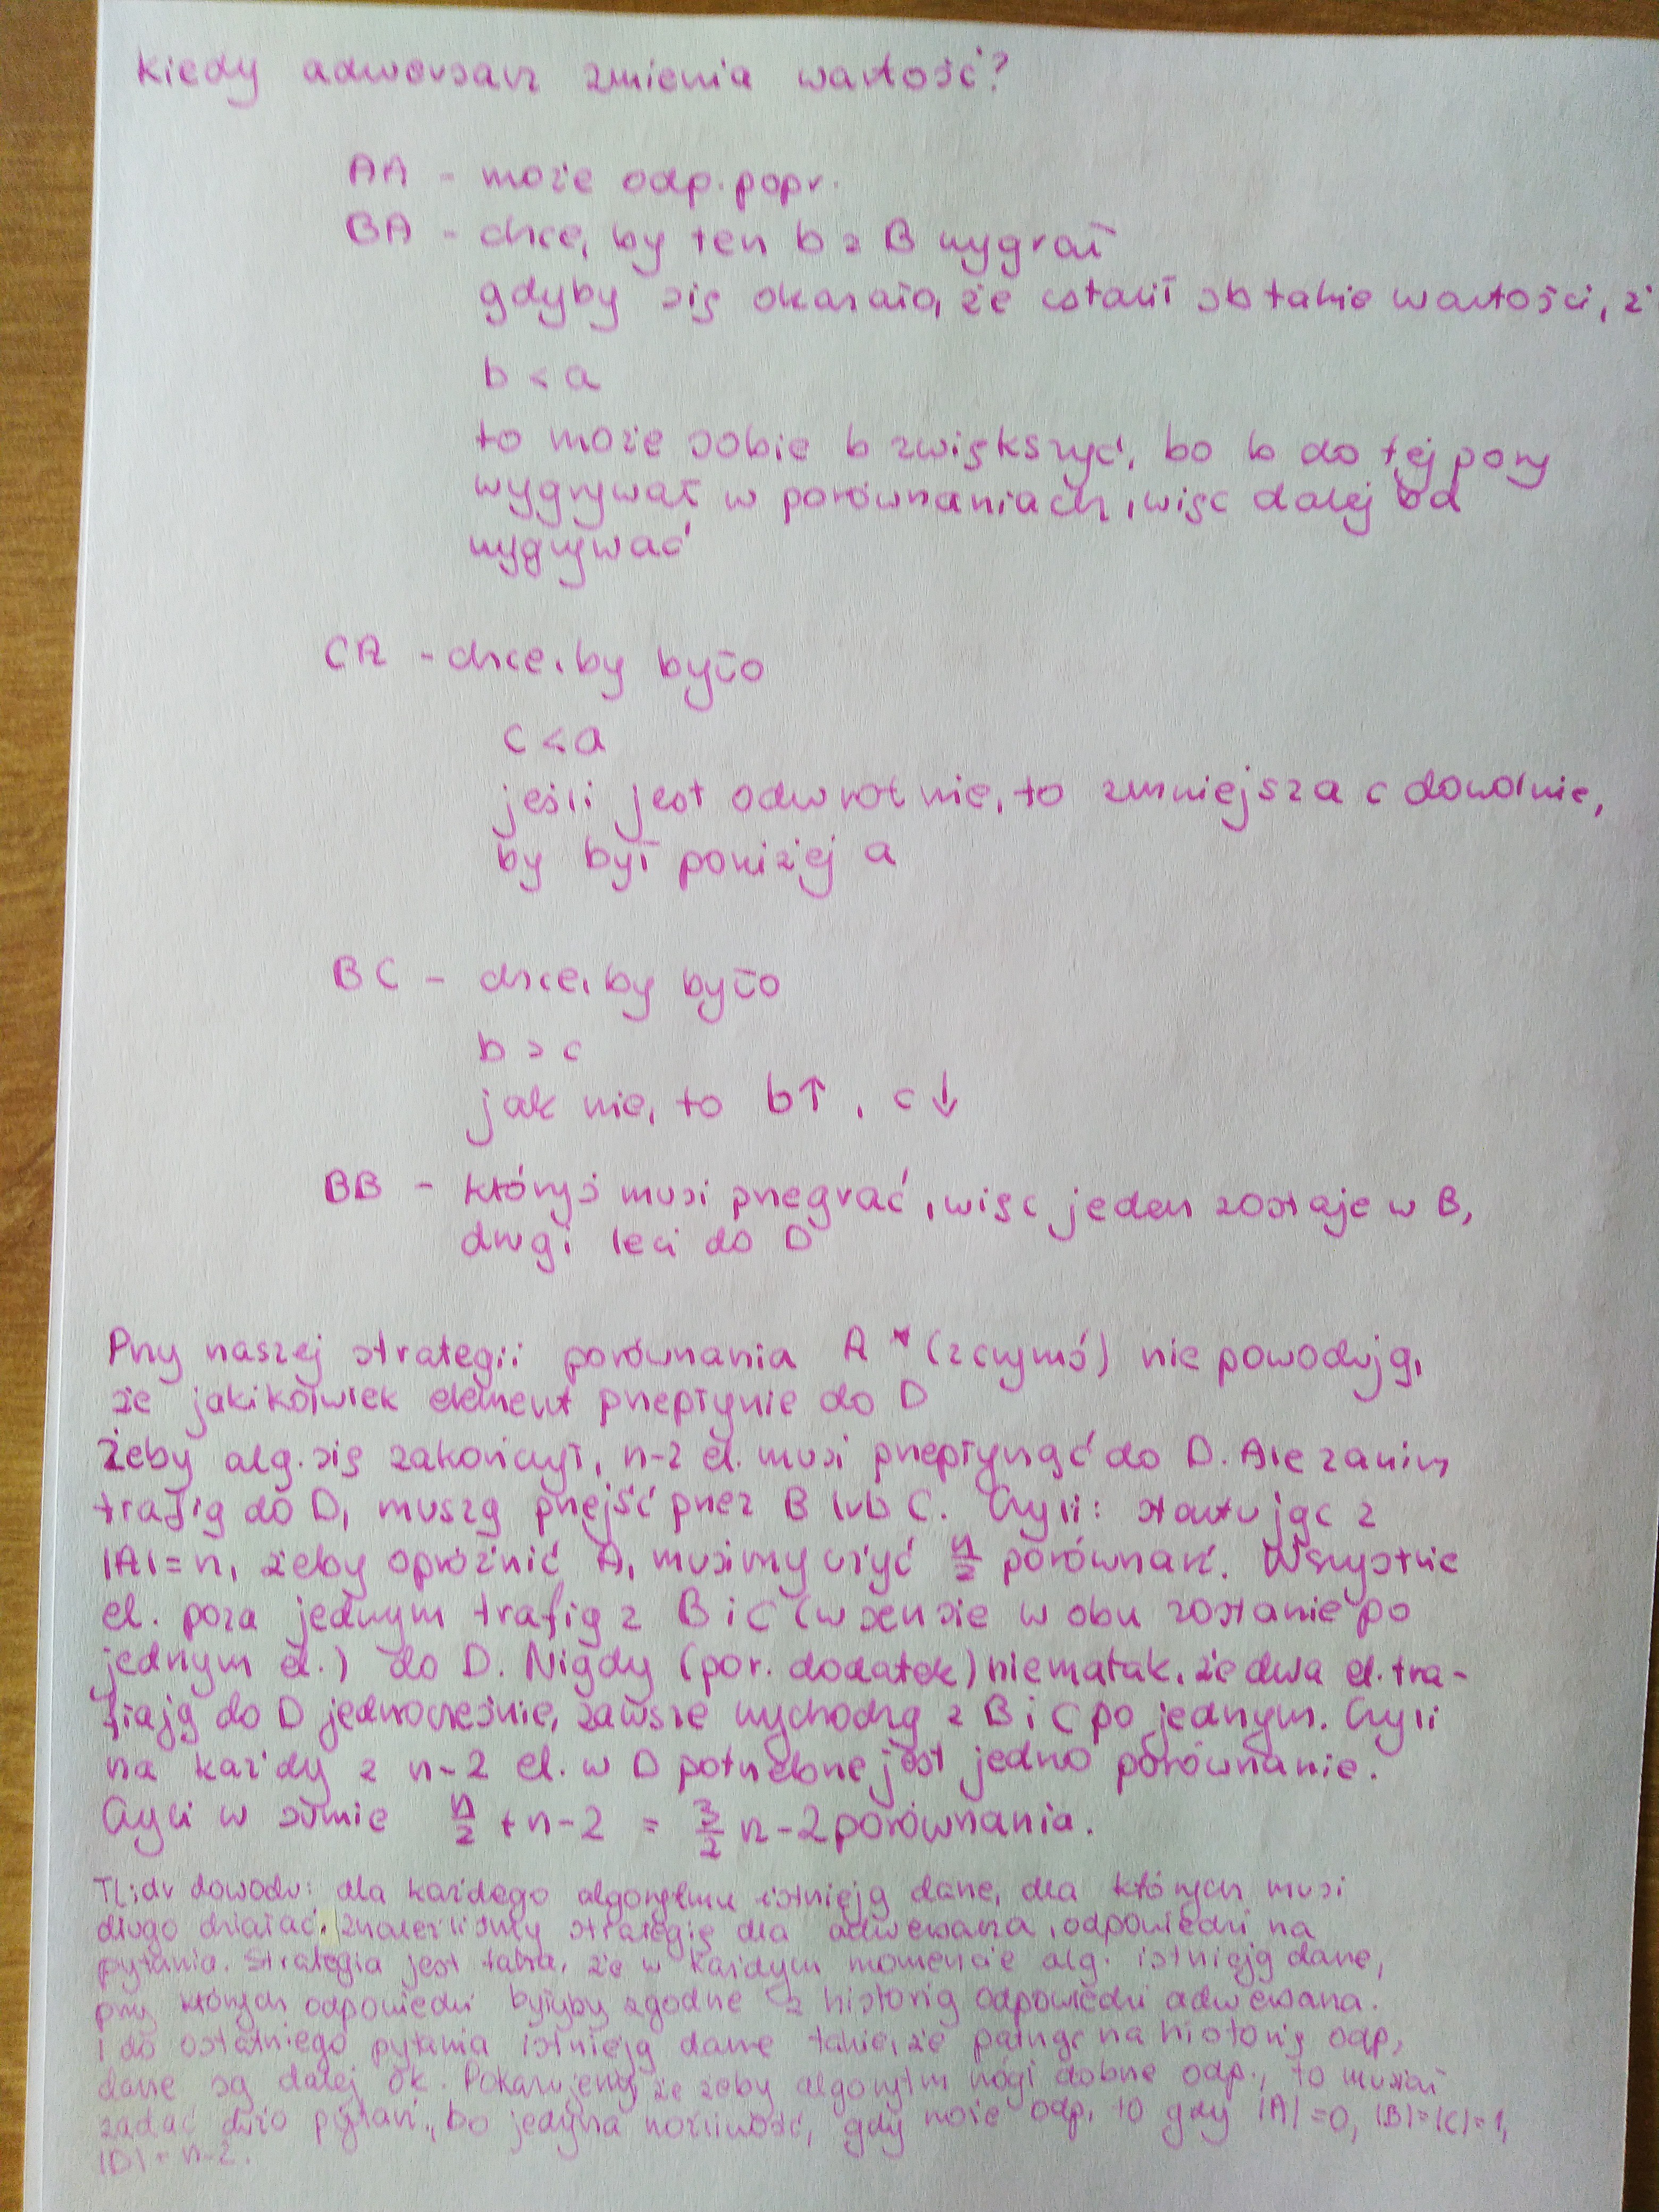 kiedy adwersarz zmienia wartość?
AA - może odp. popr.
BA - chce, by ten b z B wygrał
gdyby się okazało, że ustalił sb takie wartości, ż
b < a
to może sobie b zwiększyć, bo b do tej pory
wygrywał w porównaniach, więc dalej bd
wygrywać
CA - chce, by było
c < a
jeśli jest odwrotnie, to zmniejsza c dowolnie,
by był poniżej a
BC - chce, by było
b > c
jak nie, to b↑, c↓
BB - któryś musi przegrać, więc jeden zostaje w B,
drugi leci do D
Przy naszej strategii porównania A * (z czymś) nie powodują,
że jakikolwiek element przepłynie do D
Żeby alg. się zakończył, n-2 el. musi przepłynąć do D. Ale zanim
trafią do D, muszą przejść przez B lub C. Czyli: startując z
|A|=n, żeby opróżnić A, musimy użyć n/2 porównań. Wszystkie
el. poza jednym trafią z B i C (w sensie w obu zostanie po
jednym el.) do D. Nigdy (por. dodatek) nie ma tak, że dwa el. tra-
fiają do D jednocześnie, zawsze wychodzą z B i C po jednym. Czyli
na każdy z n-2 el. w D potrzebne jest jedno porównanie.
Czyli w sumie n/2 + n-2 = 3/2 n - 2 porównania.
Tl;dr dowodu: dla każdego algorytmu istnieją dane, dla których musi
długo działać. Znaleźliśmy strategię dla adwersarza, odpowiedzi na
pytania. Strategia jest taka, że w każdym momencie alg. istnieją dane,
przy których odpowiedzi byłyby zgodne z historią odpowiedzi adwersarza.
I do ostatniego pytania istnieją dane takie, że patrząc na historię odp,
dane są dalej ok. Pokazujemy, że żeby algorytm mógł dobrze odp., to musiał
zadać dużo pytań, bo jedyna możliwość, gdy może odp, to gdy |A|=0, |B|=|C|=1,
|D|=n-2.